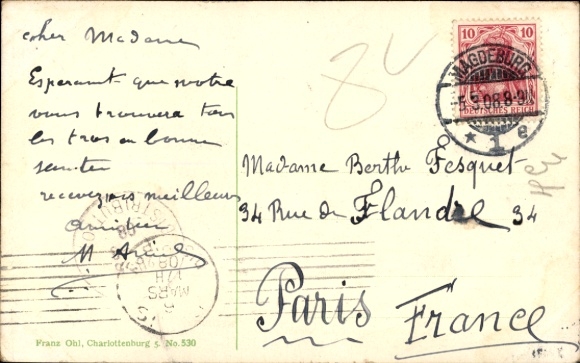 cher Madame
Esperant que notre
vous trouvera tous
les tros en bonne
santer
recevez mis meilleurs
amitier
10
10
DEUTSCHES REICH
MAGDEBURG
-5.3.08.8-9
* 1 e
Madame Berthe Fesquet
34 Rue de Flandre 34
Paris
France
DISTRIBUTION
MARS
08
Franz Ohl, Charlottenburg 5. No. 530